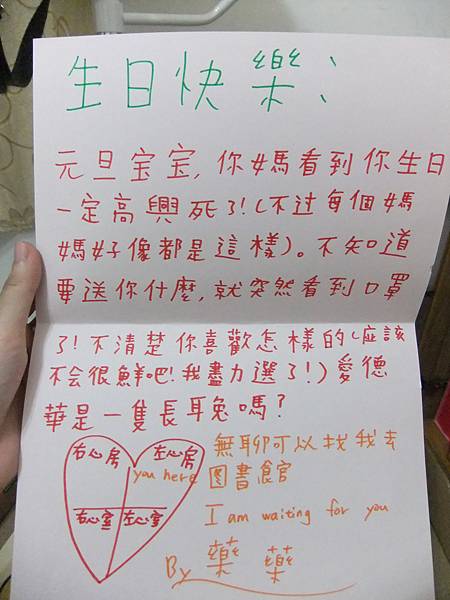 生日快樂:
元旦宝宝,你媽看到你生日
一定高興死了!(不过每個媽
媽好像都是這樣)。不知道
要送你什麼,就突然看到口罩
了!不清楚你喜歡怎樣的(应該
不会很鮮吧!我盡力選了!)愛德
華是一隻長耳兔嗎?
右心房 左心房
you here
右心室 左心室
無聊可以找我去
圖書館
I am waiting for you
By 藥 藥